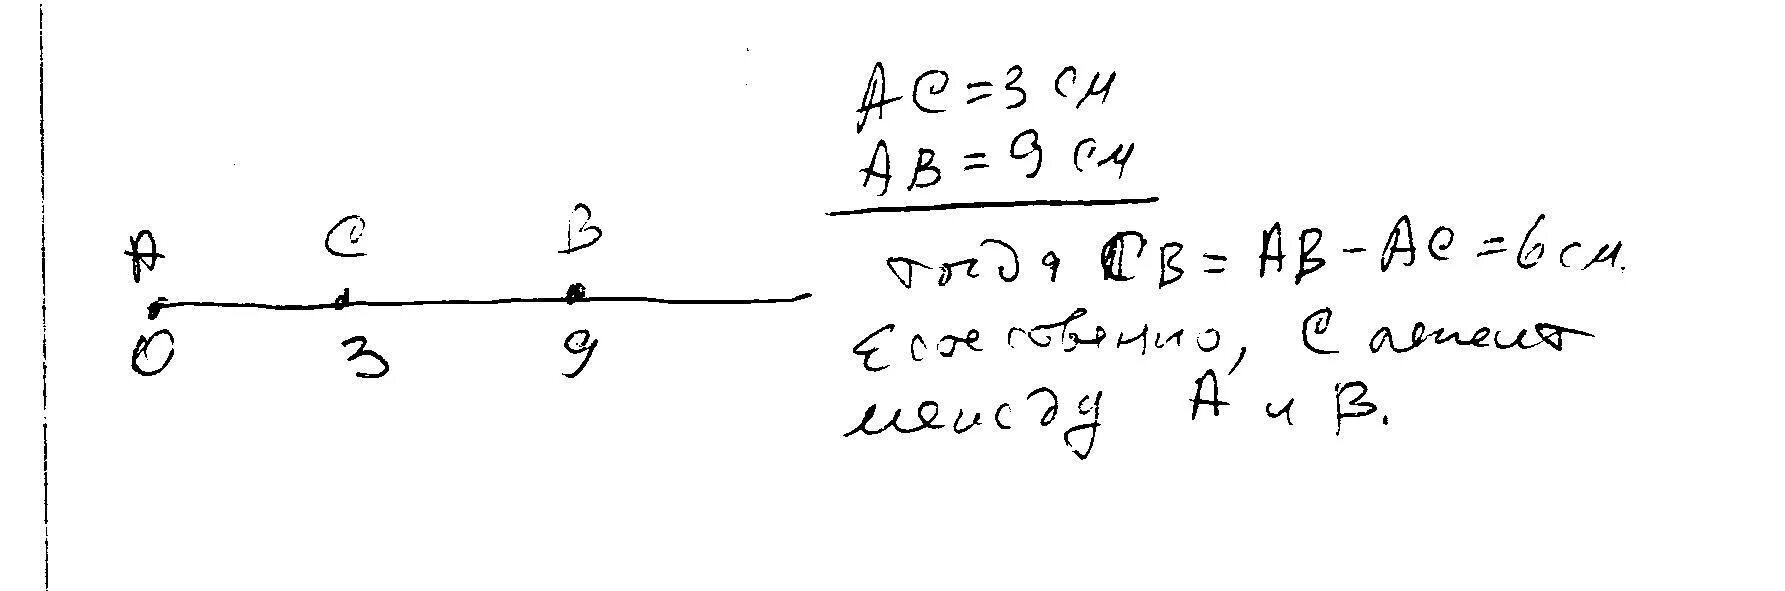 AC = 3 см
AB = 9 см
A C B
0 3 9
тогда CB = AB - AC = 6 см.
Естественно, C лежит
между A и B.